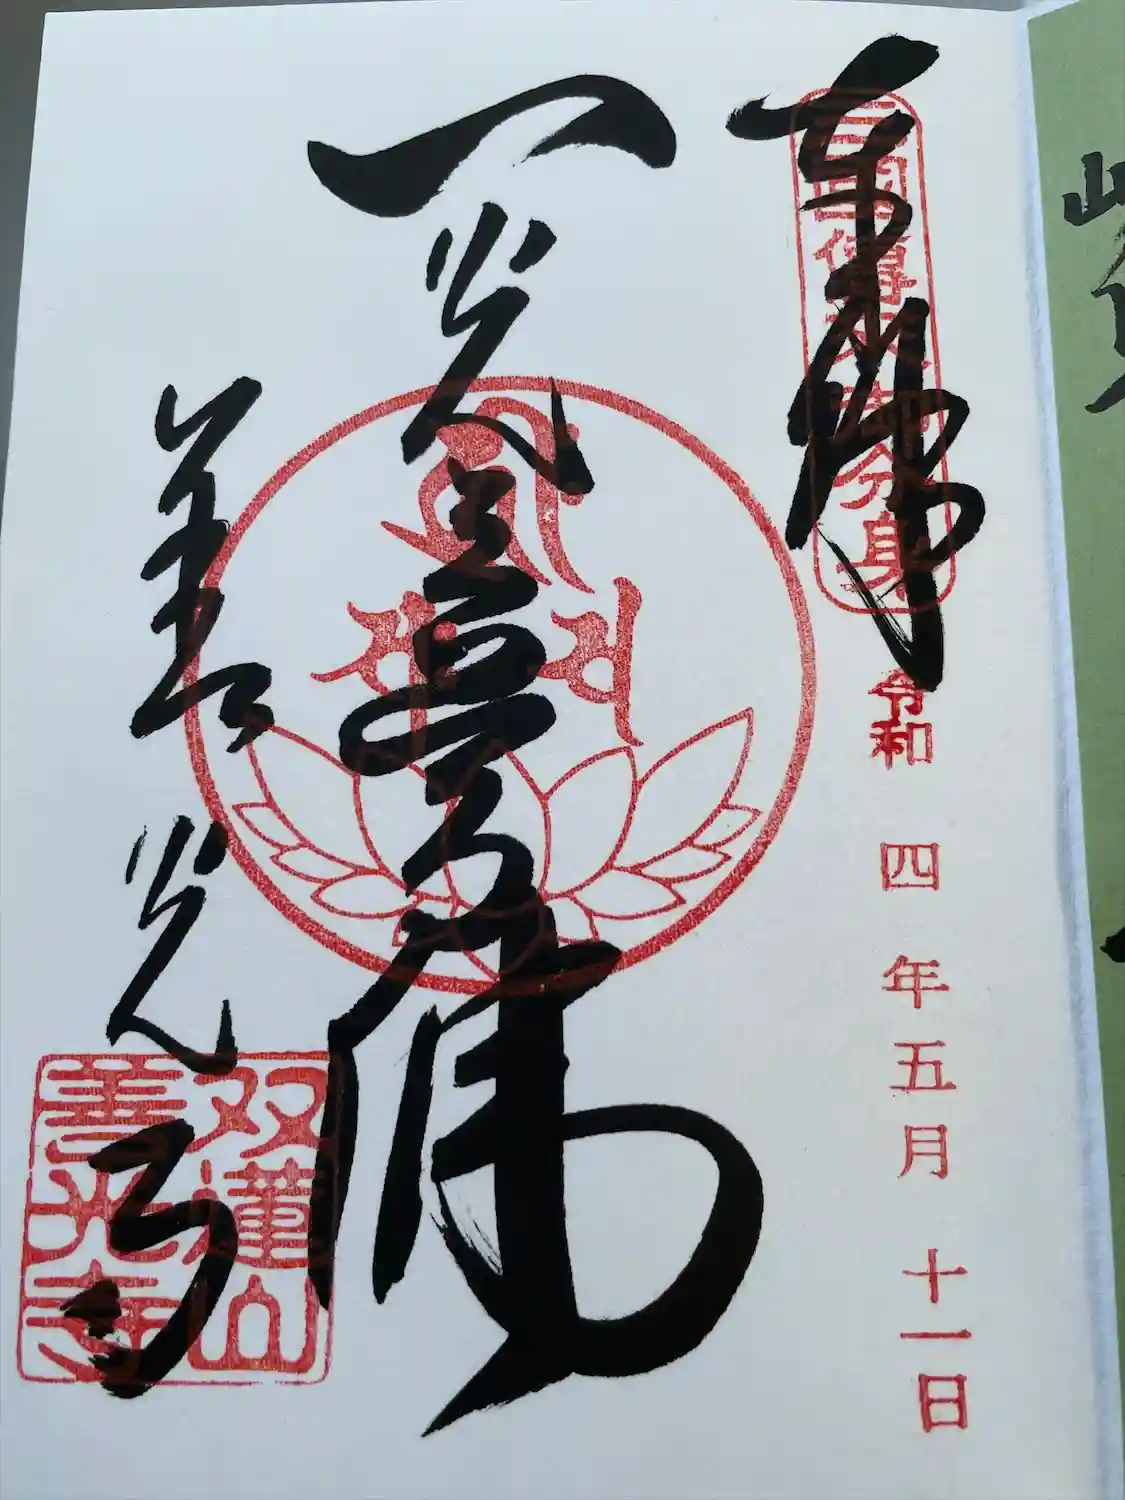 奉拝
三国傳来御分身
令和 四年五月 十一日
一光三尊佛
善光寺
双蓮山
善光寺